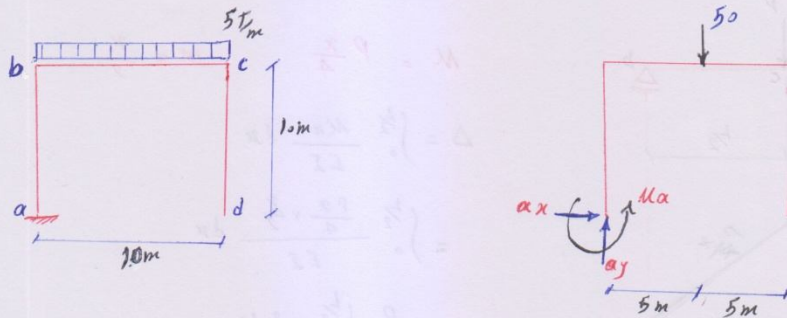 5T/m
b
c
10m
a
d
10m
50
ax
Ma
ay
5m
5m